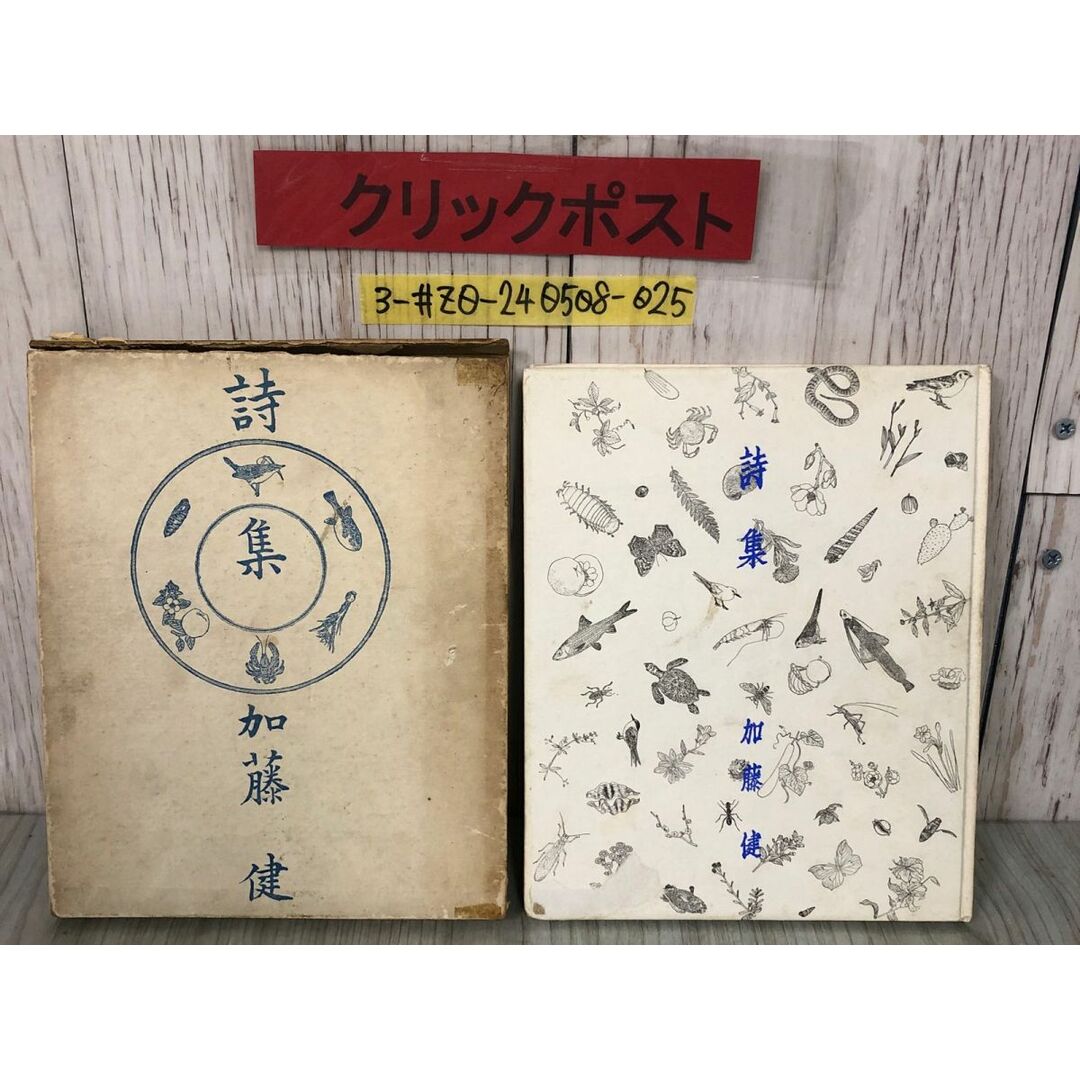 クリックポスト
3-#ZO-240508-025
詩
集
加
藤
健
詩
集
加
藤
健